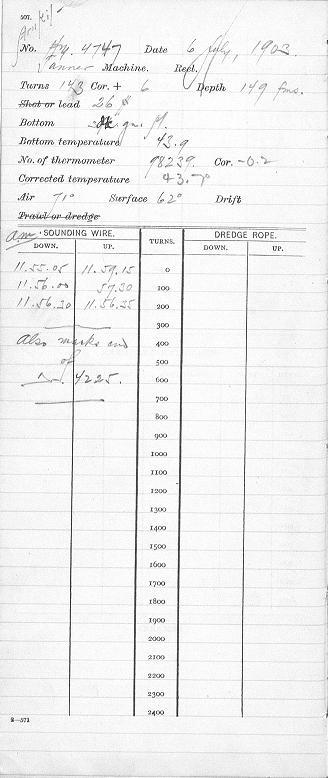 No. Hy. 4747 Date 6 July, 1903.
Tanner Machine. Reel.
Turns 143 Cor. + 6 Depth 149 fms.
Shot or lead 26 #
Bottom gn. M.
Bottom temperature 43.9
No. of thermometer 98239. Cor. -0.2
Corrected temperature 43.7°
Air 71° Surface 62° Drift
Trawl or dredge
a.m. SOUNDING WIRE. TURNS. DREDGE ROPE.
DOWN. UP. DOWN. UP.
11.55.05 11.59.15 0
11.56.00 57.30 100
11.56.30 11.56.35 200
300
Also marks end 400
of 500
4225. 600
700
800
900
1000
1100
1200
1300
1400
1500
1600
1700
1800
1900
2000
2100
2200
2300
2400
2—571